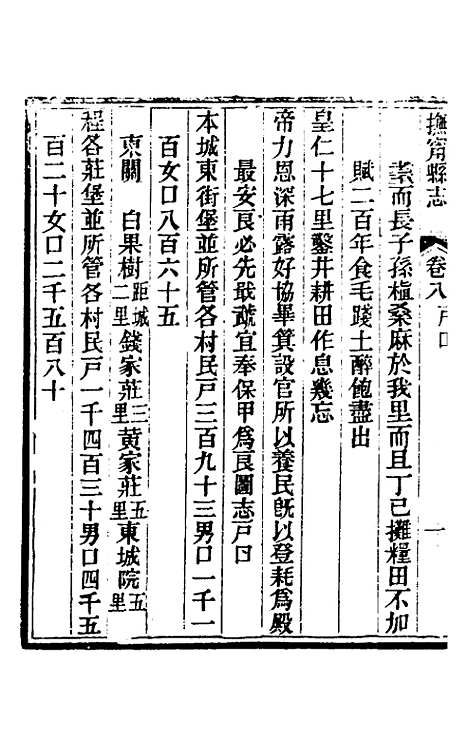 撫甯縣志 卷八 戶口 一
業而長子孫植桑麻於我里而且丁已攤糧田不加
賦二百年食毛踐土醉飽盡出
皇仁十七里鑿井耕田作息幾忘
帝力恩深雨露好協畢箕設官所以養民旣以登耗爲殿
最安良必先戢宜奉保甲爲良圖志戶口
本城東街堡並所管各村民戶三百九十三男口一千一
百女口八百六十五
東關 白果樹距城二里錢家莊三里黄家莊五里東城院五里
程各莊堡並所管各村民戶一千四百三十男口四千五
百二十女口二千五百八十